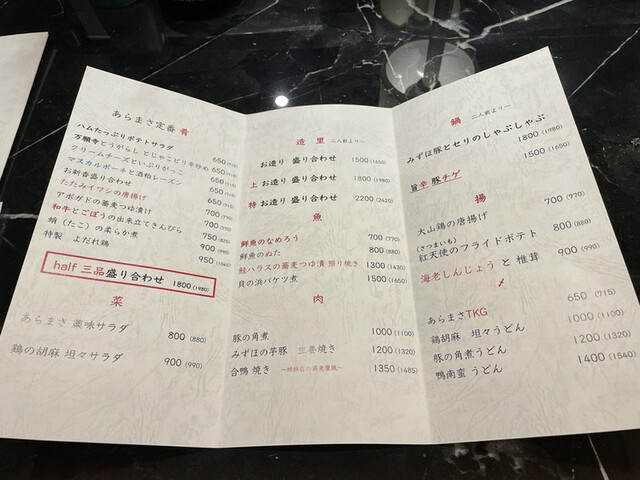 あらまさ定番 肴
ハムたっぷりポテトサラダ 650
万願寺とうがらしとじゃこピリ辛炒め 650
クリームチーズといぶりがっこ 650
マスカルポーネと酒粕レーズン 650
お新香盛り合わせ 650
たたみイワシの唐揚げ 650
アボガドの蕎麦つゆ漬け 700
和牛とごぼうの出来立てきんぴら 750 (825)
蛸（たこ）の柔らか煮 900 (990)
特製 よだれ鶏 950
half 三品盛り合わせ 1800 (1980)
菜
あらまさ 薬味サラダ 800 (880)
鶏の胡麻 坦々サラダ 900 (990)
造 里 二人前より〜
お造り 盛り合わせ 1500 (1650)
上 お造り 盛り合わせ 1800 (1980)
特 お造り 盛り合わせ 2200 (2420)
魚
鮮魚のなめろう 700 (770)
鮮魚のぬた 800 (880)
鮭ハラスの蕎麦つゆ漬 照り焼き 1300 (1430)
貝の浜バケツ煮 1500 (1650)
肉
豚の角煮 1000 (1100)
みずほの芋豚 生姜焼き 1200 (1320)
合鴨 焼き 1350 (1485)
鍋 二人前より〜
みずほ豚とセリのしゃぶしゃぶ 1800 (1980)
旨辛 豚チゲ 1500 (1650)
揚
大山鶏の唐揚げ 700 (770)
(さつまいも)
紅天使のフライドポテト 800 (880)
海老しんじょう と 椎茸 900 (990)
〆
あらまさTKG 650 (715)
鶏胡麻 坦々うどん 1000 (1100)
豚の角煮うどん 1200 (1320)
鴨南蛮 うどん 1400 (1540)